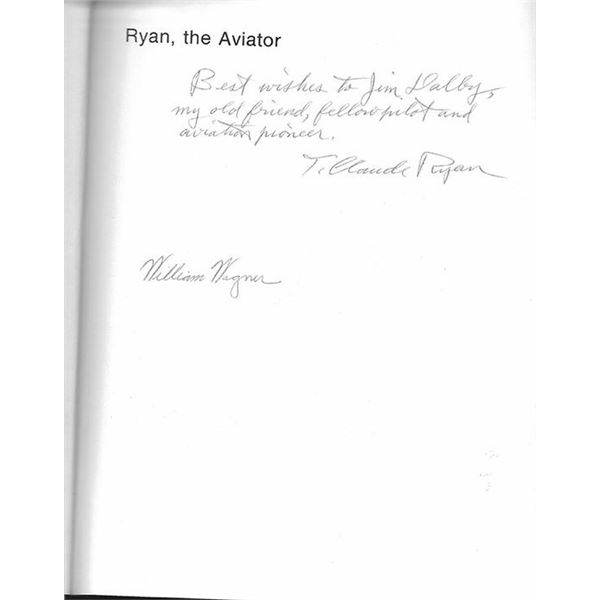 Ryan, the Aviator
Best wishes to Jim Dalby,
my old friend, fellow pilot and
aviation pioneer.
T. Claude Ryan
William Wagner